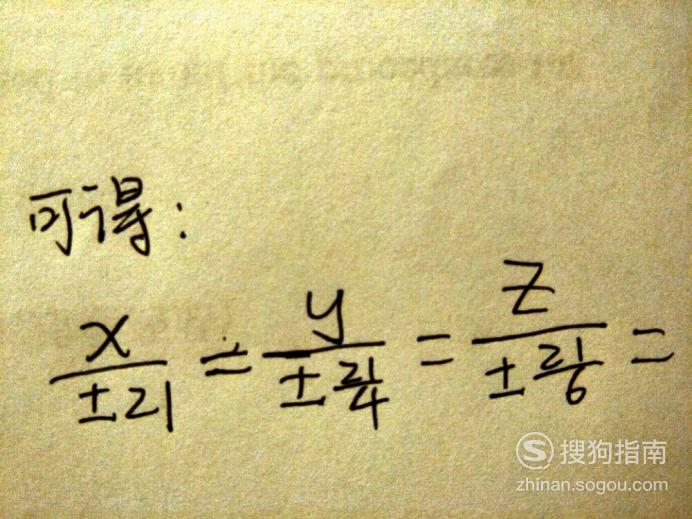 可得：
x/±21 = y/±21/4 = z/±21/6 =
搜狗指南
zhinan.sogou.com